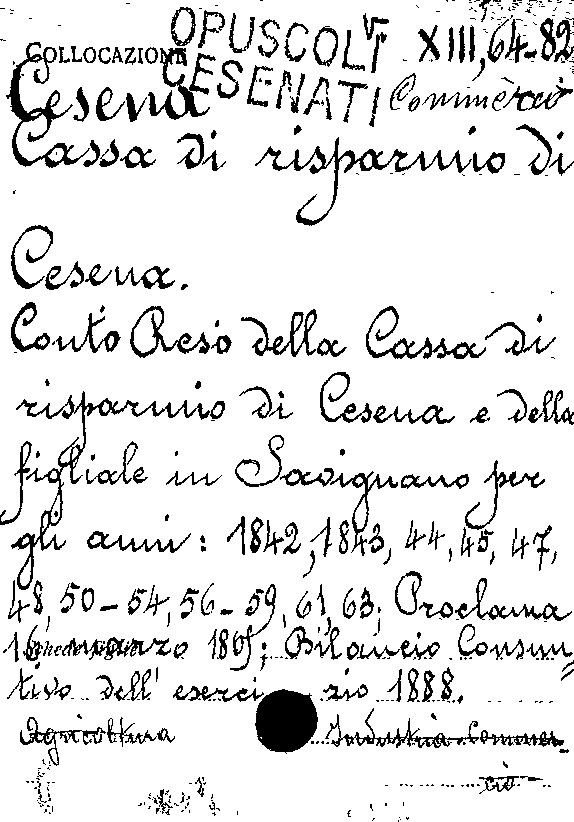 OPUSCOLI VI XIII, 64-82
COLLOCAZIONE CESENATI Commercio
Cesena
Cassa di risparmio di
Cesena.
Conto Reso della Cassa di
risparmio di Cesena e della
figliale in Savignano per
gli anni: 1842, 1843, 44, 45, 47,
48, 50-54, 56-59, 61, 63; Proclama
16 marzo ; Bilancio Consun=
tivo dell' eserci zio 1888.
Agricoltura Industria Commer-
cio